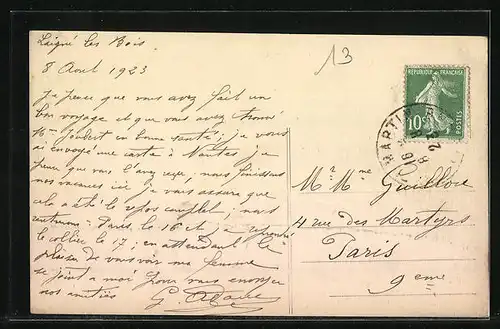 Laigné les Bois
8 Aout 1923
Je pense que vous avez fait un
bon voyage et que vous avez trouvé
Joubert en bonne santé; je vous
ai envoyé une carte à Nantes je
pense que vous l'avez reçue, nous finissons
nos vacances ici je vous assure que
cela a été le repos complet; nous
rentrerons à Paris le 16 et je reprends
le collier le 17; en attendant le
plaisir de vous voir ma femme
se joint à moi pour vous envoyer
nos amitiés
G.
13
REPUBLIQUE FRANÇAISE
10c
POSTES
MARTI
16
8
23
Mr Mme Guillou
4 rue des Martyrs
Paris
9eme